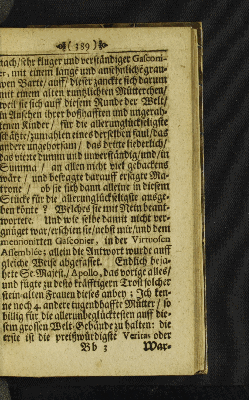 ( 389 )
nach / sehr kluger und verständiger Gasconi-
er, mit einem lange und ansehnliche grau-
en Barte / auff; dieser zanckte sich darum
mit einem alten runtzlichten Mütterchen /
weil sie sich auff diesem Runde der Welt /
in Ansehen ihrer boßhafften und ungerah-
tenen Kinder / für die allerunglückseligste
schätzte / zumahlen eines derselben faul / das
andere ungehorsam / das dritte liederlich /
das vierte dumm und unverständig / und / in
Summa / an allen nicht viel gebackens
wäre / und befragte darauff ersagte Ma-
trone / ob sie sich dann alleine in diesem
Stücke für die allerunglückseligste ausge-
ben könte ? Welches sie mit Nein beant-
wortete. Und wie selbe damit nicht ver-
gnüget war / erschien sie / nebst mir / und dem
mentionirten Gasconier, in der Virtuosen
Assemblée; allein die Antwort wurde auff
gleiche Weise abgefasset. Endlich beja-
hete Se. Majest. / Apollo, das vorige alles /
und fügte zu desto kräfftigern Trost solcher
stein-alten Frauen dieses anbey ; Ich ken-
ne noch 4. andere tugendhaffte Mütter / so
billig für die allerunbeglücktesten auff die-
sem grossen Welt-Gebäude zu halten: die
erste ist die preißwürdigste Veritas oder
Bb 3 War-